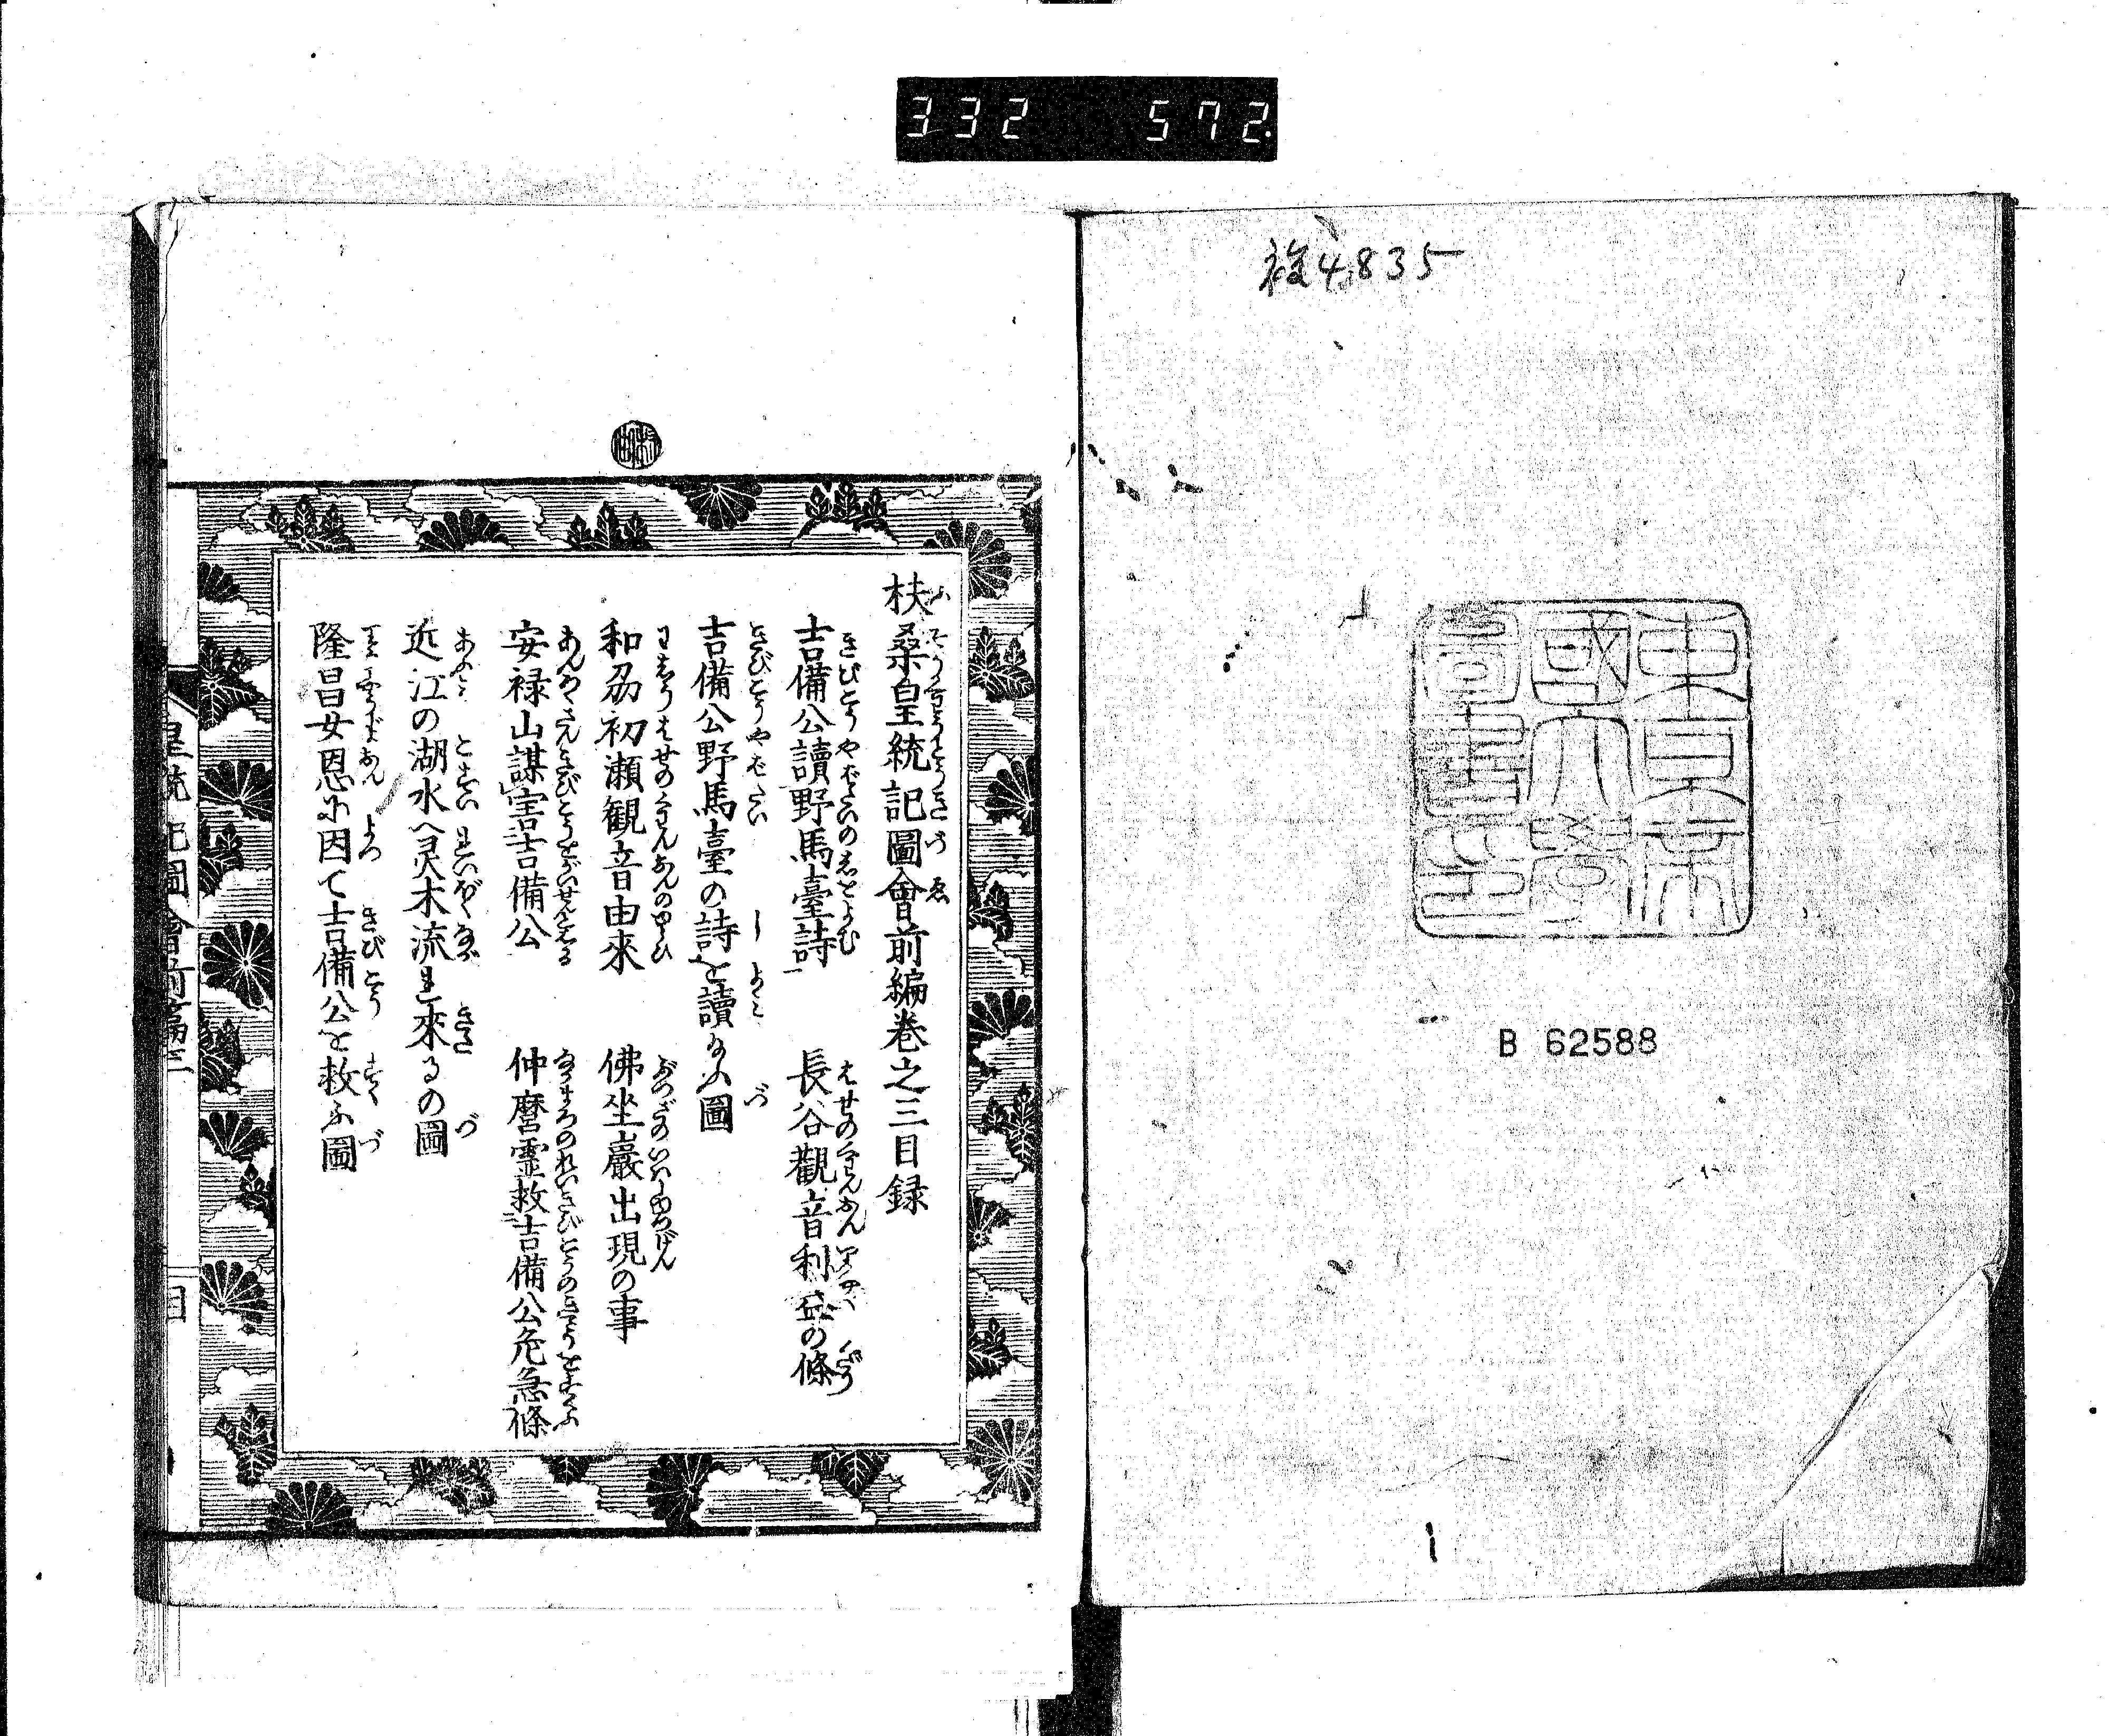 332 572
複4835
東京帝
國大學
圖書印
B 62588
扶桑皇統記圖會前編巻之三目録
吉備公讀野馬臺詩 長谷觀音利益の條
吉備公野馬臺の詩を讀給ふ圖
和刕初瀬観音由來 佛坐巖出現の事
安禄山謀害吉備公 仲麿霊救吉備公危急條
近江の湖水へ灵木流れ來るの圖
隆昌女恩に因て吉備公を救ふ圖
皇統記圖會前編三
目